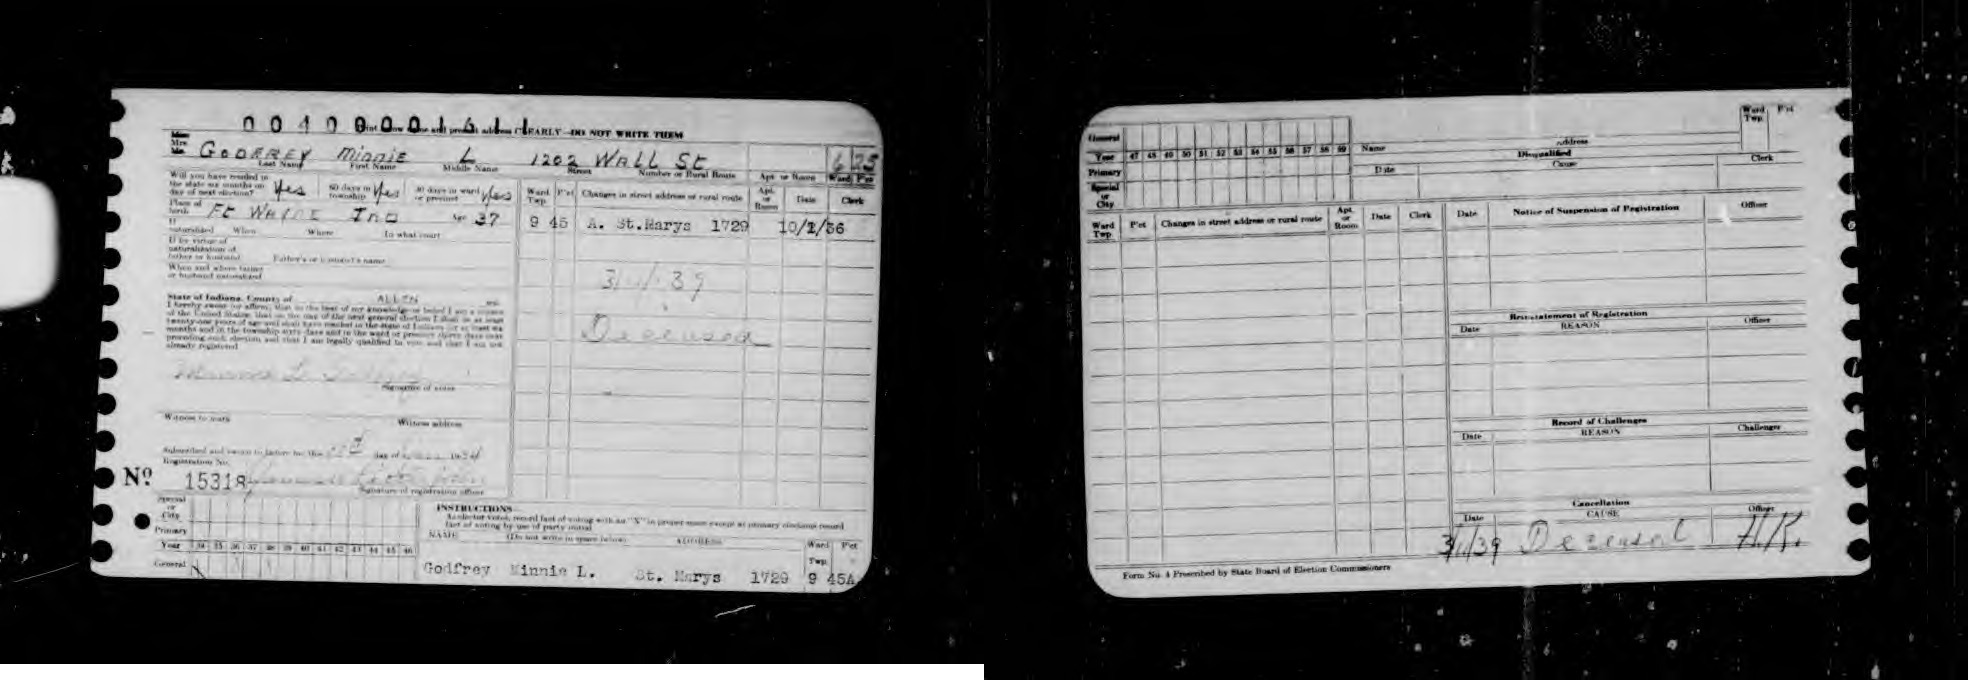 00400001611
Print how name and present address CLEARLY—DO NOT WRITE THEM
Miss
Mrs.
Mr. GODFREY Minnie L 1202 WALL St 6 25
Last Name First Name Middle Name Street Number or Rural Route Apt or Room Ward P'ct
Will you have resided in
the state six months on
day of next election? Yes 60 days in township Yes 30 days in ward or precinct Yes
Place of birth Ft WAYNE IND Age 37
If naturalized When Where In what court
If by virtue of
naturalization of
father or husband Father's or husband's name
When and where father
or husband naturalized
State of Indiana, County of ALLEN ss:
I hereby swear (or affirm) that to the best of my knowledge or belief I am a citizen
of the United States; that on the day of the next general election I shall be at least
twenty-one years of age and shall have resided in the State of Indiana for at least six
months and in the township sixty days and in the ward or precinct thirty days next
preceding such election and that I am legally qualified to vote and that I am not
already registered
Minnie L. Godfrey
Signature of voter
Witness to mark Witness address
Subscribed and sworn to before me this day of 1934
Registration No.
Nº 15318
Signature of registration officer
Ward Twp. P'ct Changes in street address or rural route Apt. or Room Date Clerk
9 45 A. St.Marys 1729 10/1/36
3/11/39
Deceased
Special or City
Primary
Year 34 35 36 37 38 39 40 41 42 43 44 45 46
General X
INSTRUCTIONS—
As elector votes, record fact of voting with an "X" in proper space except at primary elections record
fact of voting by use of party initial
NAME (Do not write in space below) ADDRESS Ward Twp. P'ct
Godfrey Minnie L. St. Marys 1729 9 45A
General
Year 47 48 49 50 51 52 53 54 55 56 57 58 59
Primary
Special or City
Name Address Ward Twp. P'ct
Disqualified
Date Cause Clerk
Ward Twp. P'ct Changes in street address or rural route Apt. or Room Date Clerk
Date Notice of Suspension of Registration Officer
Reinstatement of Registration
Date REASON Officer
Record of Challenges
Date REASON Challenger
Cancellation
Date CAUSE Officer
3/11/39 Deceased H.K.
Form No. 4 Prescribed by State Board of Election Commissioners